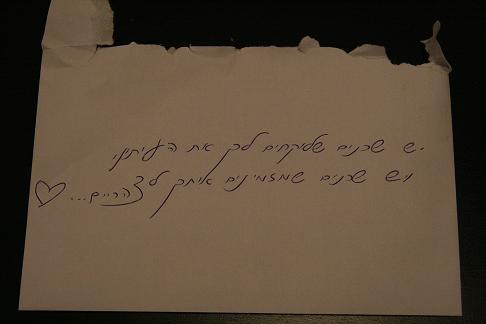 יש שכנים שלוקחים לכן את העיתון,
ויש שכנים שמזמינים אתכן לצהריים...